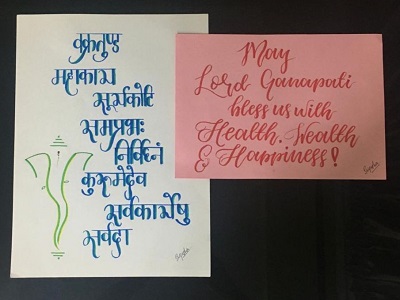 वक्रतुण्ड
महाकाय
सूर्यकोटि
समप्रभः
निर्विघ्नं
कुरूमेदेव
सर्वकार्येषु
सर्वदा
May
Lord Ganapati
bless us with
Health, Wealth
& Happiness!